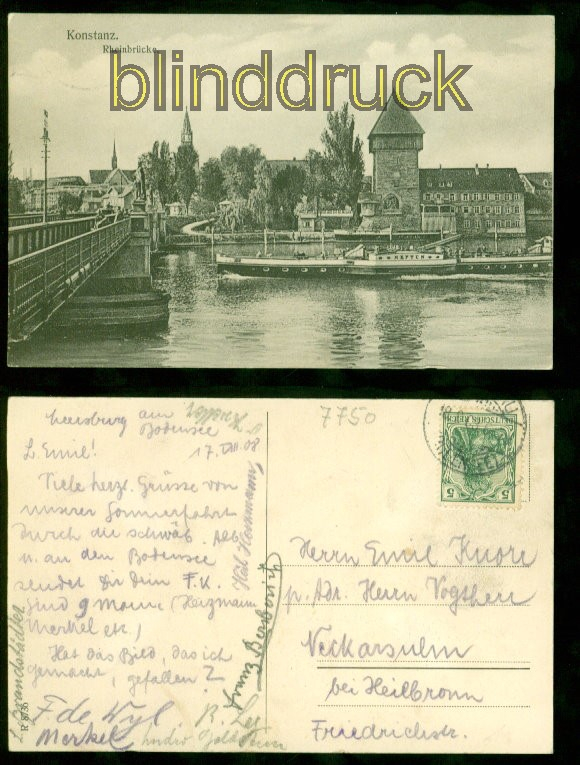 Konstanz.
Rheinbrücke.
blinddruck
HAFFEN
7750
Meersburg am
Bodensee
17. VIII 08
L. Emil!
Viele herzl. Grüsse von
unserer Sommerfahrt
durch die schwäb. Alb
u. an den Bodensee
sendet Dir Dein F.K.
Sind 9 Mann (Herzmann
Merkel etc.)
Hat das Bild, das ich
gemacht, gefallen?
F de Wyl
Merkel
R.
Franz
DEUTSCHES REICH
5 5
Herrn Emil Knorr
p. Adr. Herrn Vogtherr
Neckarsulm
bei Heilbronn
Friedrichstr.